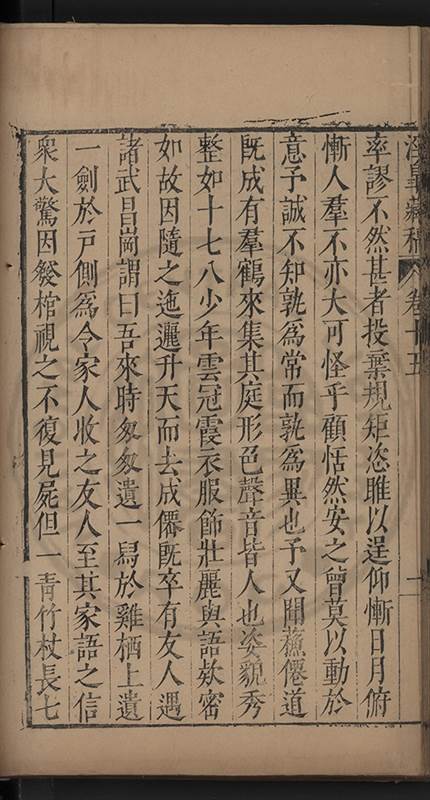 淫皐藏稿 卷十五 一
率謬不然甚者投棄規矩恣睢以逞仰慚日月俯
慚人羣不亦大可怪乎顧恬然安之曾莫以動於
意予誠不知孰爲常而孰爲異也予又聞蘇僊道
旣成有羣鶴來集其庭形色聲音皆人也姿貌秀
整如十七八少年雲冠霞衣服飾壯麗與語欵密
如故因隨之迤邐升天而去成僊旣卒有友人遇
諸武昌崗謂曰吾來時匆匆遺一舄於雞栖上遺
一劍於戸側爲令家人收之友人至其家語之信
衆大驚因發棺視之不復見屍但一青竹杖長七